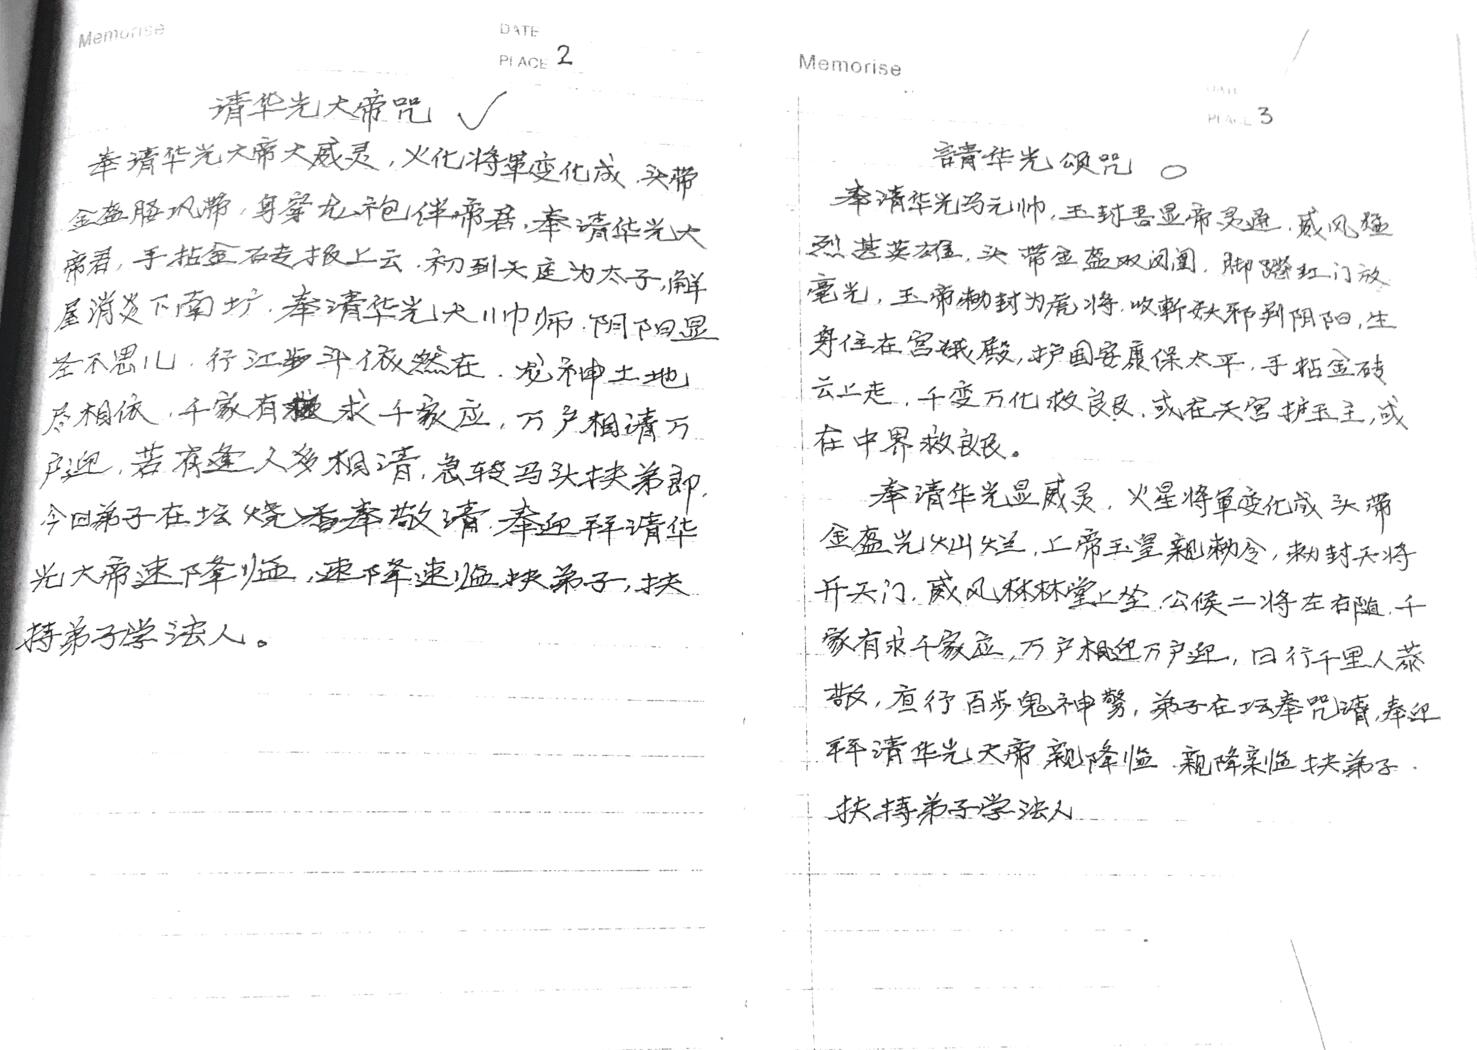 Memorise
DATE
PLACE 2
请华光大帝咒 ✓
奉请华光大帝大威灵，火化将軍变化成，头带
金盔腰风带，身穿龙袍伴帝君，奉请华光大
帝君，手拈金砖报上云，初到天庭为太子，解
屋消災下南圹，奉请华光大帅师，阴阳显
圣不思儿，行江步斗依然在，龙神土地
尽相依，千家有求千家应，万户相请万
户迎，若有逢人多相请，急转马头扶弟郎，
今日弟子在坛烧香奉敬请，奉迎拜请华
光大帝速降临，速降速临扶弟子，扶
持弟子学法人。
Memorise
DATE
PLACE 3
請华光頌咒 ○
奉请华光马元帅，玉封吾显帝灵通，威风猛
烈甚英雄，头带金盔双凤凰，脚踏红门放
毫光，玉帝勅封为虎将，收斬妖邪判阴阳，生
身住在宫娥殿，护国安康保太平，手拈金砖
云上走，千变万化救良民，或在天宫护玉主，或
在中界救良民。
奉请华光显威灵，火星将軍变化成，头带
金盔光灿烂，上帝玉皇親勅令，勅封天将
开天门，威风林林堂上坐，公候二将左右随，千
家有求千家应，万户相迎万户迎，日行千里人恭
敬，夜行百步鬼神驚，弟子在坛奉咒请，奉迎
拜请华光大帝親降临，親降亲临扶弟子．
扶持弟子学法人